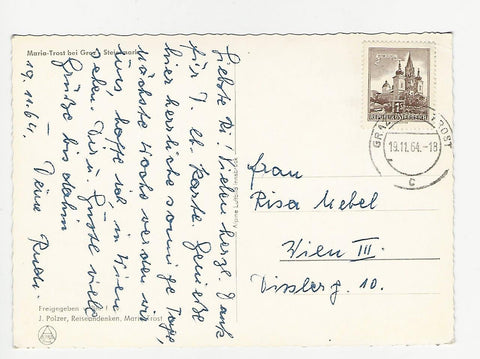 Maria-Trost bei Graz, Steiermark
Liebste Ri! Vielen herzl. Dank
für d. lb. Karte. Genieße
hier herrliche sonnige Tage,
nächste Woche werden wir
uns, hoffe ich in Wien
sehen. Dir u. Gustl viele
Grüße bis dahin
Deine Rudi.
19.11.64.
Freigegeben
J. Polzer, Reiseandenken, Maria-Trost
Alpine Luftb
REPUBLIK ÖSTERREICH
GRAZ
TROST
19.11.64.-18
C
Frau
Risa Mebel
Wien III.
Disslerg. 10.